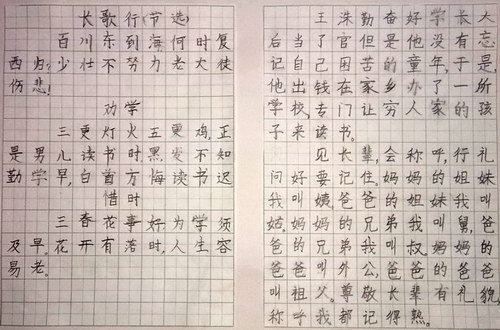 长歌行(节选)
百川东到海何时复
西归?少壮不努力老大徒
伤悲!
劝学
三更灯火五更鸡,正
是男儿读书时,黑发不知
勤学早,白首方悔读书迟
惜时
三春花事好,为学须
及早。花开有落时,人生容
易老。
王洙勤奋好学长大
后当了官但是他没有忘
记自己困苦的童年,于是
他出钱在家乡办了一所
学校,专门让穷人家的孩
子来读书。
见长辈,会称呼,行礼
问好要记住。妈妈的姐妹
我叫姨爸爸的姐妹我叫
姑。妈妈的兄弟我叫舅,爸
爸的兄弟我叫叔。妈妈的
爸爸叫外公,爸爸的爸爸
叫祖父。尊敬长辈有礼貌,
称呼我都记得熟。